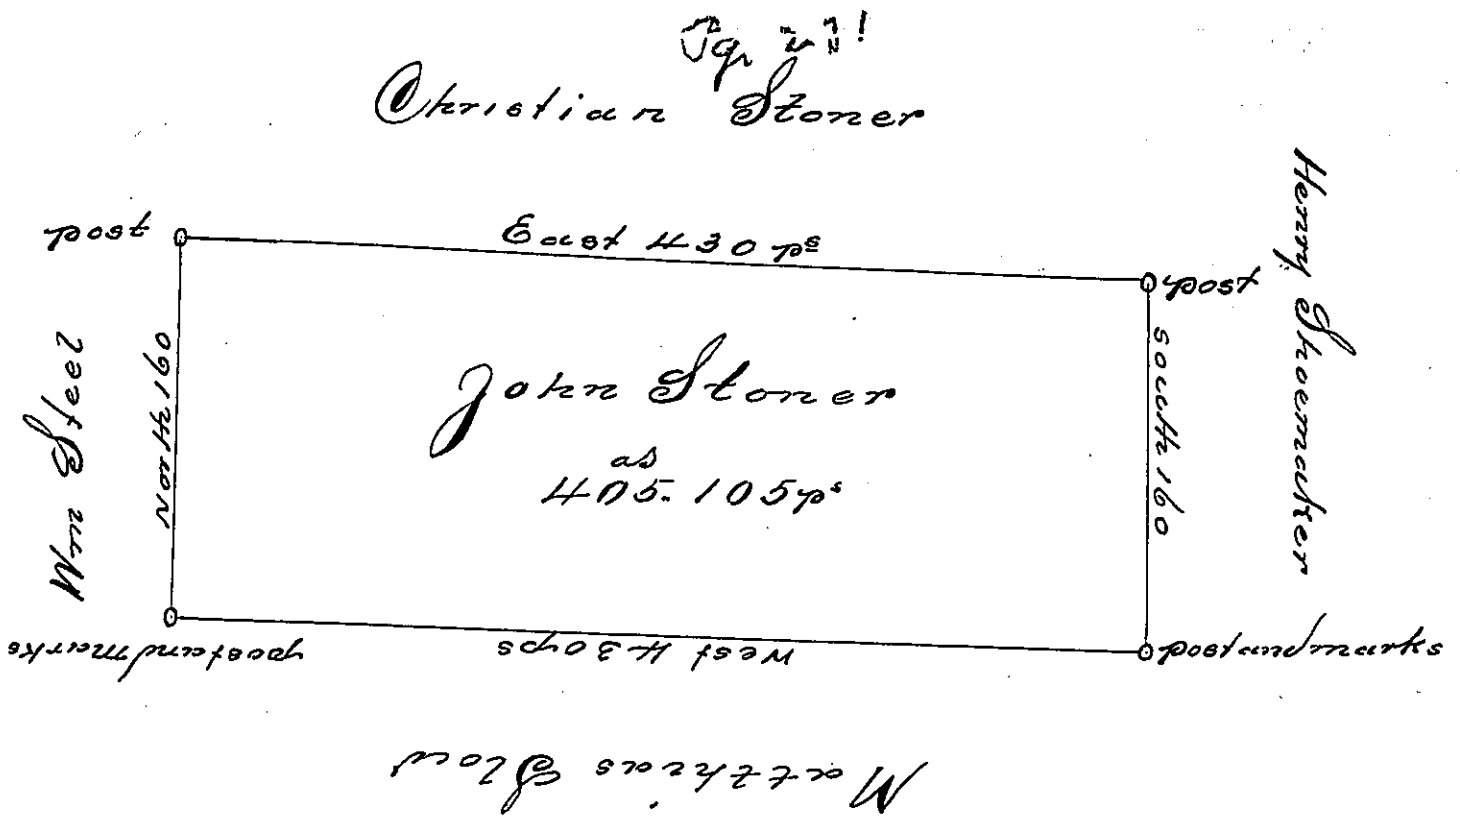 Christian Stoner
post
East 430 ps
post
Henry Shoemaker
South 160
John Stoner
as
405. 105 ps
Wm Steel
North 160
post and marks
West 430 ps
post and marks
Matthias Slow